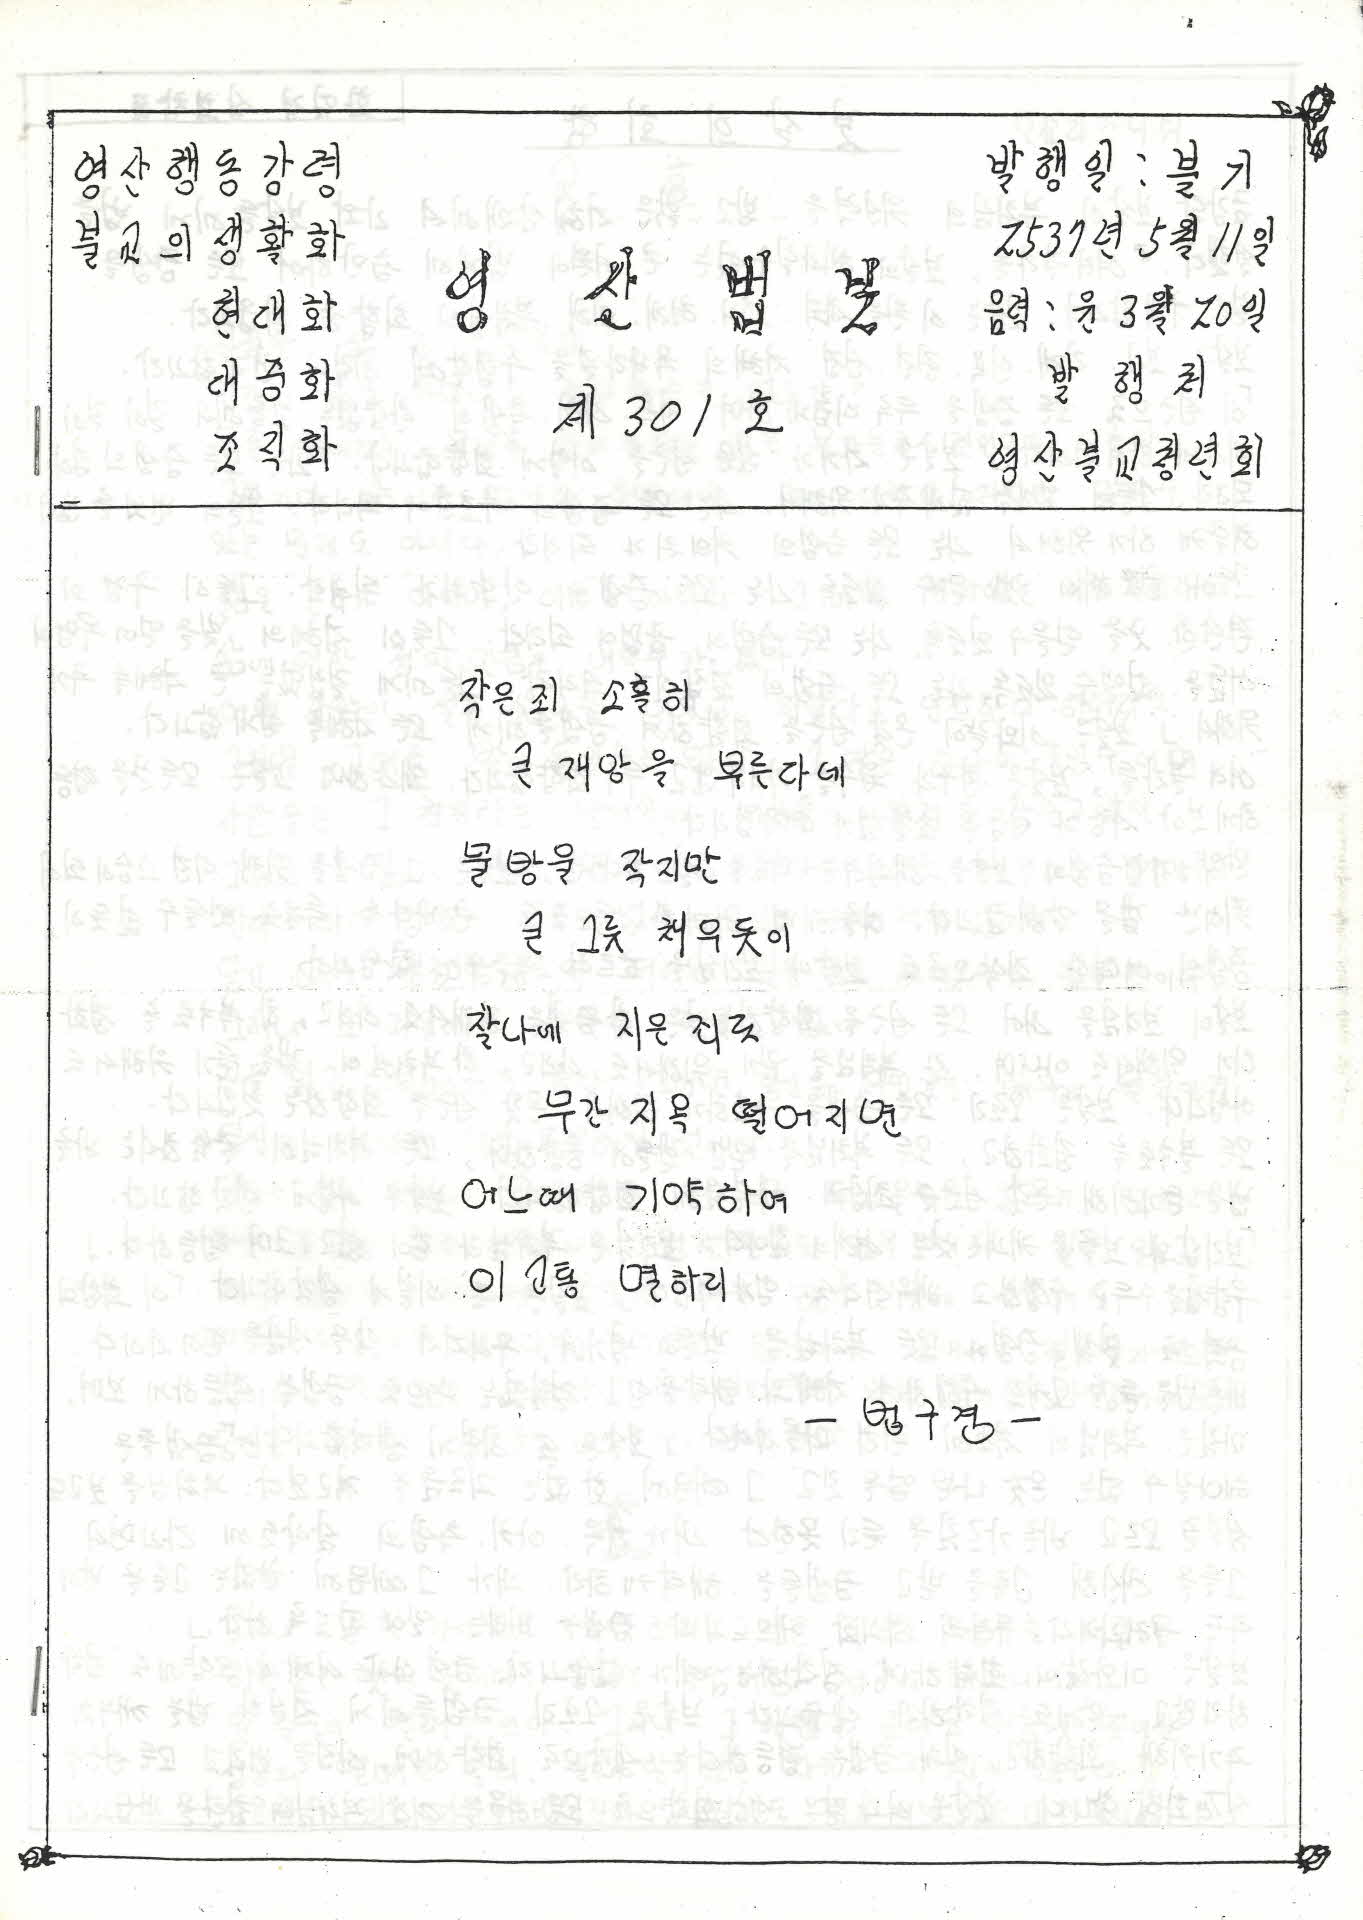 영산행동강령
불교의생활화
현대화
대중화
조직화
영산법보
제301호
발행일:불기
2537년 5월 11일
음력:윤3월 20일
발행처
영산불교청년회
작은죄 소홀히
큰 재앙을 부른다네
물방울 작지만
큰 그릇 채우듯이
찰나에 지은죄로
무간지옥 떨어지면
어느때 기약하여
이 고통 멸하리
- 법구경 -